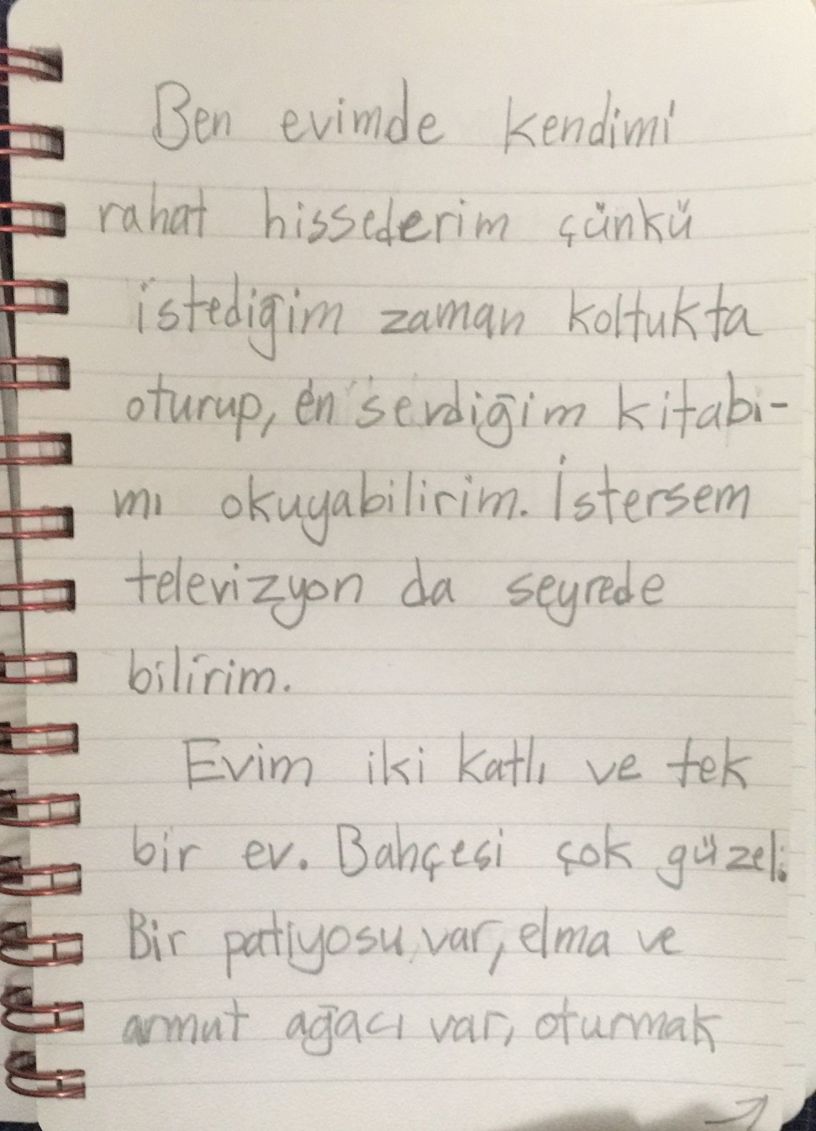 Ben evimde kendimi
rahat hissederim çünkü
istediğim zaman koltukta
oturup, en serdiğim kitabi-
mı okuyabilirim. İstersem
televizyon da seyrede
bilirim.
Evim iki katlı ve tek
bir ev. Bahçesi çok güzel.
Bir patiyosu var, elma ve
armut ağacı var, oturmak